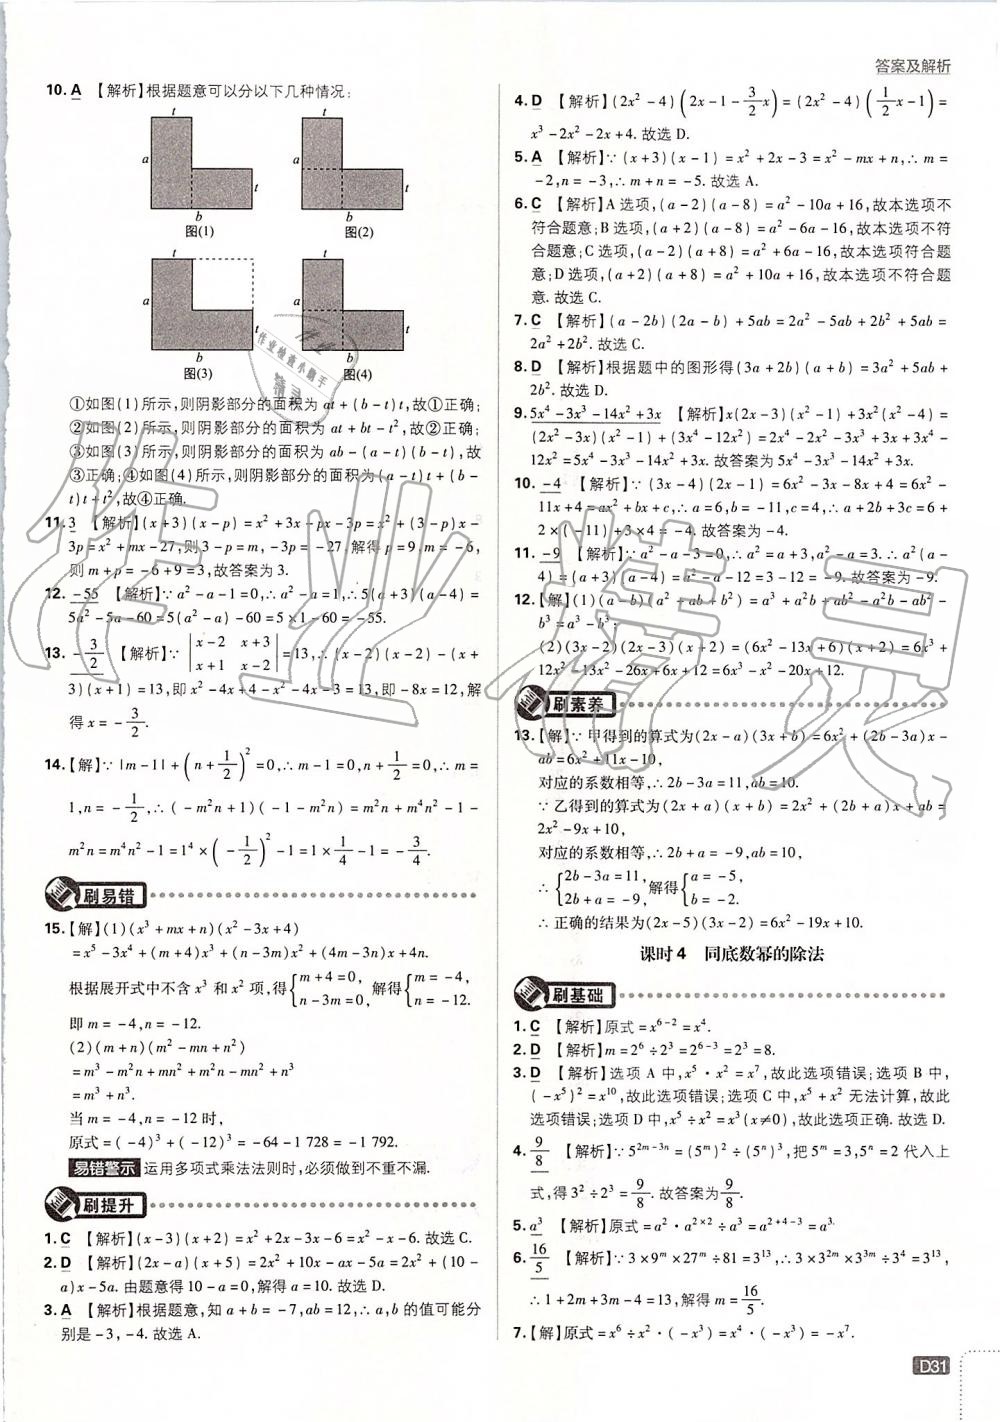 答案及解析
10. A 【解析】根据题意可以分以下几种情况:
t t
a t b
图(1)
a t b
图(2)
a t b
图(3)
a t b
图(4)
①如图(1)所示,则阴影部分的面积为 at+(b-t)t,故①正确;
②如图(2)所示,则阴影部分的面积为 at+bt-t²,故②正确;
③如图(3)所示,则阴影部分的面积为 ab-(a-t)(b-t),故
③正确;④如图(4)所示,则阴影部分的面积为(a-t)t+(b-
t)t+t²,故④正确.
11. 3 【解析】(x+3)(x-p)=x²+3x-px-3p=x²+(3-p)x-
3p=x²+mx-27,则3-p=m,-3p=-27,解得p=9,m=-6,
则m+p=-6+9=3,故答案为3.
12. -55 【解析】∵a²-a-1=0,∴a²-a=1,∴5(a+3)(a-4)=
5a²-5a-60=5(a²-a)-60=5×1-60=-55.
13. -3/2 【解析】∵|x-2 x+3; x+1 x-2|=13,∴(x-2)(x-2)-(x+
3)(x+1)=13,即x²-4x+4-x²-4x-3=13,即-8x=12,解
得x=-3/2.
14.【解】∵|m-1|+(n+1/2)²=0,∴m-1=0,n+1/2=0,∴m=
1,n=-1/2,∴(-m²n+1)(-1-m²n)=m²n+m⁴n²-1-
m²n=m⁴n²-1=1⁴×(-1/2)²-1=1×1/4-1=-3/4.
刷易错
15.【解】(1)(x³+mx+n)(x²-3x+4)
=x⁵-3x⁴+(m+4)x³+(n-3m)x²+(4m-3n)x+4n.
根据展开式中不含x³和x²项,得{m+4=0, n-3m=0, 解得{m=-4, n=-12.
即m=-4,n=-12.
(2)(m+n)(m²-mn+n²)
=m³-m²n+mn²+m²n-mn²+n³
=m³+n³.
当m=-4,n=-12时,
原式=(-4)³+(-12)³=-64-1 728=-1 792.
易错警示 运用多项式乘法法则时,必须做到不重不漏.
刷提升
1. C 【解析】(x-3)(x+2)=x²+2x-3x-6=x²-x-6.故选C.
2. D 【解析】(2x-a)(x+5)=2x²+10x-ax-5a=2x²+(10-
a)x-5a.由题意得10-a=0,解得a=10.故选D.
3. A 【解析】根据题意,知a+b=-7,ab=12,∴a,b的值可能分
别是-3,-4.故选A.
4. D 【解析】(2x²-4)(2x-1-3/2x)=(2x²-4)(1/2x-1)=
x³-2x²-2x+4.故选D.
5. A 【解析】∵(x+3)(x-1)=x²+2x-3=x²-mx+n,∴m=
-2,n=-3,∴m+n=-5.故选A.
6. C 【解析】A选项,(a-2)(a-8)=a²-10a+16,故本选项不
符合题意;B选项,(a+2)(a-8)=a²-6a-16,故本选项不符
合题意;C选项,(a-2)(a+8)=a²+6a-16,故本选项符合题
意;D选项,(a+2)(a+8)=a²+10a+16,故本选项不符合题
意.故选C.
7. C 【解析】(a-2b)(2a-b)+5ab=2a²-5ab+2b²+5ab=
2a²+2b².故选C.
8. D 【解析】根据题中的图形得(3a+2b)(a+b)=3a²+5ab+
2b².故选D.
9. 5x⁴-3x³-14x²+3x 【解析】x(2x-3)(x²-1)+3x²(x²-4)=
(2x²-3x)(x²-1)+(3x⁴-12x²)=2x⁴-2x²-3x³+3x+3x⁴-
12x²=5x⁴-3x³-14x²+3x.故答案为5x⁴-3x³-14x²+3x.
10. -4 【解析】∵(3x-4)(2x-1)=6x²-3x-8x+4=6x²-
11x+4=ax²+bx+c,∴a=6,b=-11,c=4,∴a+2b+3c=6+
2×(-11)+3×4=-4.故答案为-4.
11. -9 【解析】∵a²-a-3=0,∴a²=a+3,a²-a=3,∴a²(a-
4)=(a+3)(a-4)=a²-a-12=3-12=-9.故答案为-9.
12.【解】(1)(a-b)(a²+ab+b²)=a³+a²b+ab²-a²b-ab²-
b³=a³-b³;
(2)(3x-2)(2x-3)(x+2)=(6x²-13x+6)(x+2)=6x³+
12x²-13x²-26x+6x+12=6x³-x²-20x+12.
刷素养
13.【解】∵甲得到的算式为(2x-a)(3x+b)=6x²+(2b-3a)x-
ab=6x²+11x-10,
对应的系数相等,∴2b-3a=11,ab=10.
∵乙得到的算式为(2x+a)(x+b)=2x²+(2b+a)x+ab=
2x²-9x+10,
对应的系数相等,∴2b+a=-9,ab=10,
∴{2b-3a=11, 2b+a=-9, 解得{a=-5, b=-2.
∴正确的结果为(2x-5)(3x-2)=6x²-19x+10.
课时4 同底数幂的除法
刷基础
1. C 【解析】原式=x⁶⁻²=x⁴.
2. D 【解析】m=2⁶÷2³=2⁶⁻³=2³=8.
3. D 【解析】选项A中,x⁵·x²=x⁷,故此选项错误;选项B中,
(-x⁵)²=x¹⁰,故此选项错误;选项C中,x⁵+x²无法计算,故此
选项错误;选项D中,x⁵÷x²=x³(x≠0),故此选项正确.故选D.
4. 9/8 【解析】∵5²ᵐ⁻³ⁿ=(5ᵐ)²÷(5ⁿ)³,把5ᵐ=3,5ⁿ=2代入上
式,得3²÷2³=9/8.故答案为9/8.
5. a³ 【解析】原式=a²·a²ˣ²÷a³=a²⁺⁴⁻³=a³.
6. 16/5 【解析】∵3×9ᵐ×27ᵐ÷81=3¹³,∴3×3²ᵐ×3³ᵐ÷3⁴=3¹³,
∴1+2m+3m-4=13,解得m=16/5.
7.【解】原式=x⁶÷x²·(-x³)=x⁴·(-x³)=-x⁷.
D31
作业精灵
作业检查小助手